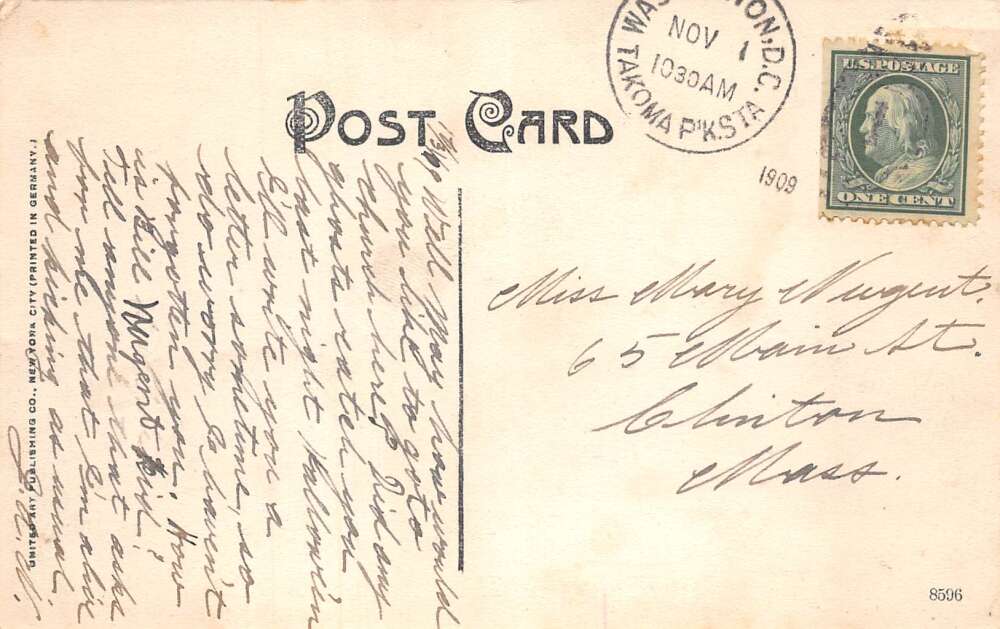 POST CARD
WASHINGTON, D.C.
NOV 1
1030 AM
TAKOMA P'K. STA
1909
U.S. POSTAGE
ONE CENT
Well May how would
you like to go to
church here? Did any
ghosts catch you
last night Hallowe'en
I'll write you a
letter sometime, so
do worry I haven't
forgotten you. How
is Bill Nugent Kid?
Tell anyone that asks
for me that I'm alive
and kicking as usual.
Miss Mary Nugent.
65 Main St.
Clinton
Mass.
UNITED ART PUBLISHING CO., NEW YORK CITY (PRINTED IN GERMANY.)
8596